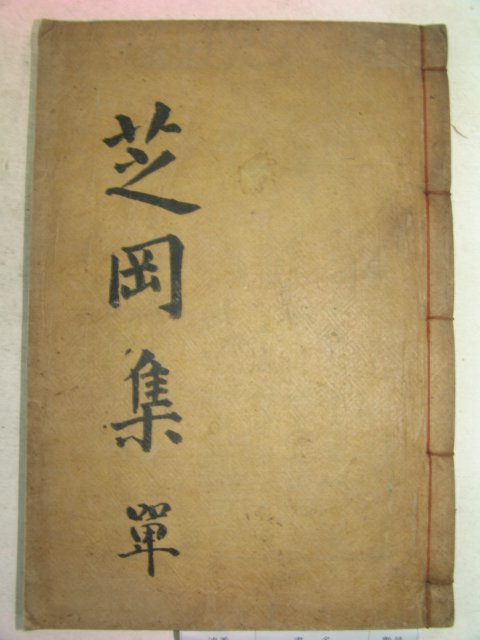 芝岡集 單